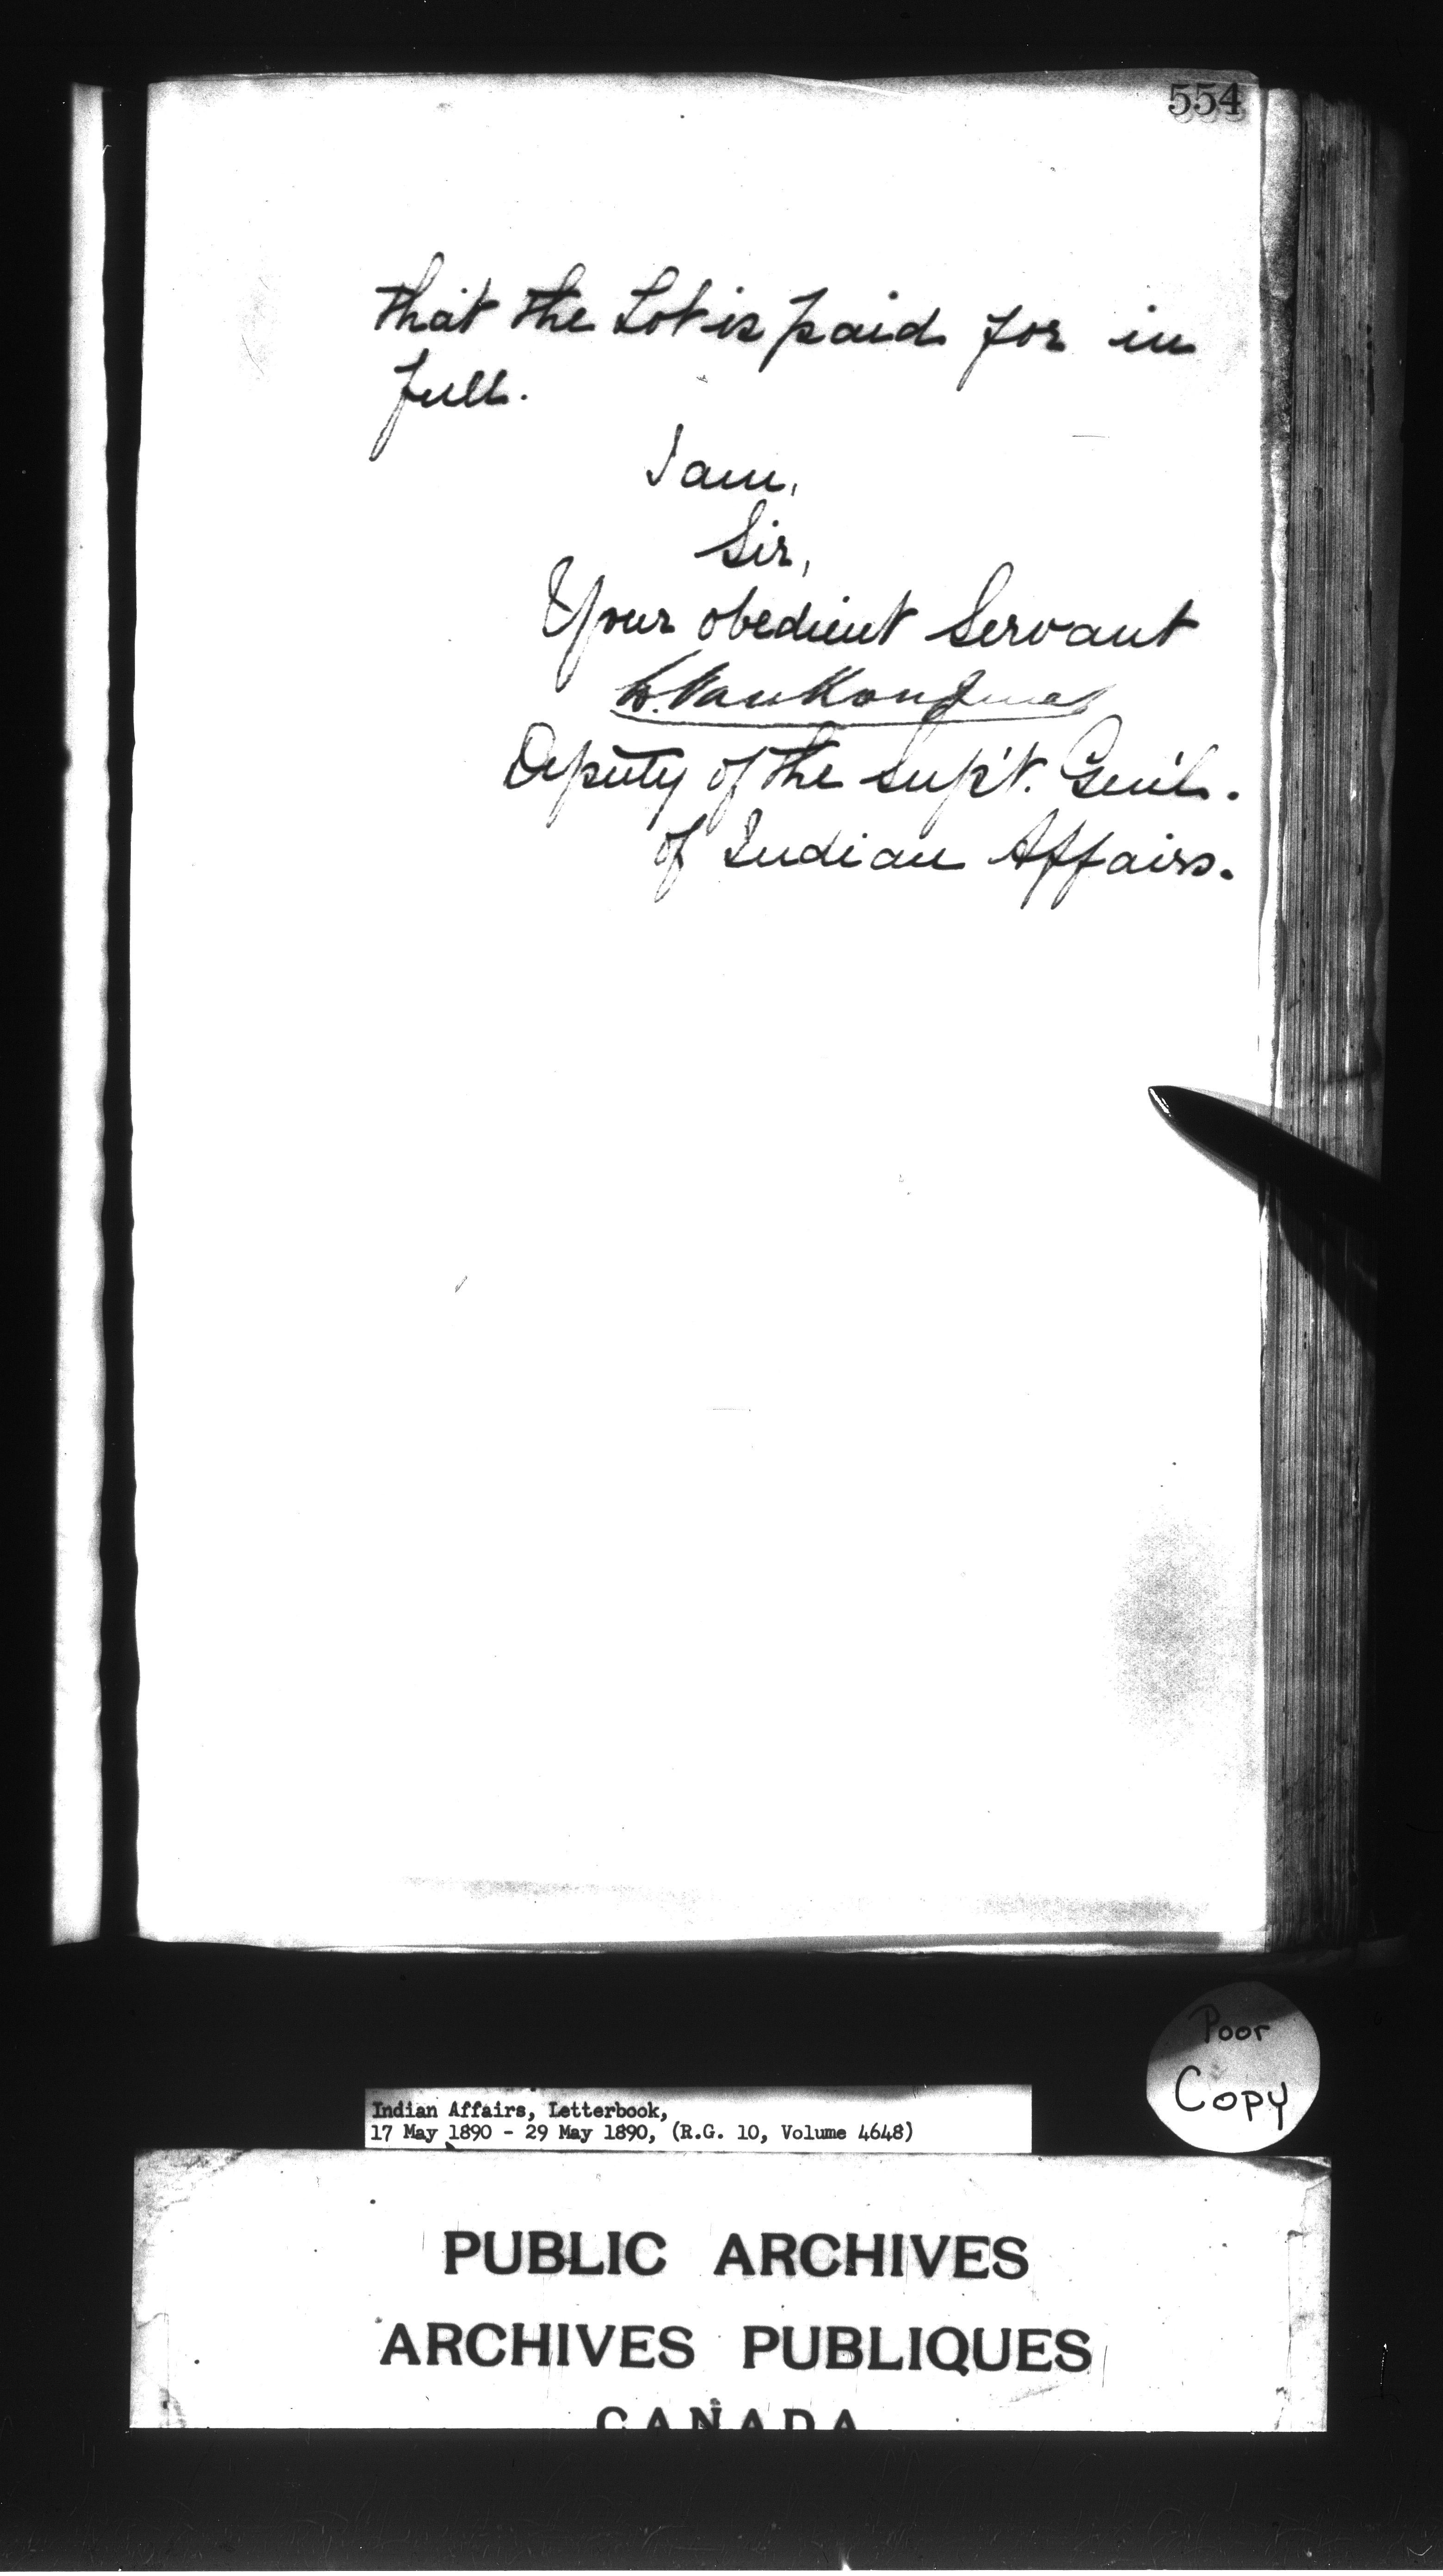 554
that the Lot is paid for in
full.
I am,
Sir,
Your obedient Servant
L. VanKoughnet
Deputy of the Sup't. Gen'l.
of Indian Affairs.
Poor
Copy
Indian Affairs, Letterbook,
17 May 1890 - 29 May 1890, (R.G. 10, Volume 4648)
PUBLIC ARCHIVES
ARCHIVES PUBLIQUES
CANADA